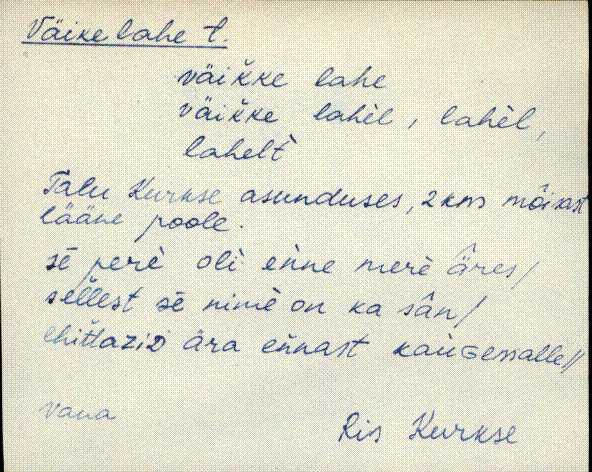 Väike lahe t.
väikke lahe
väikke lahèl, lahèl,
lahelt
Talu Kurkse asunduses, 2 km mõisast
lääne poole.
sē perè oli enne merè äres/
sellest sē nimè on ka sân/
ehittaziD ära ennast kaùGessalle//
vana
Ris Kurkse